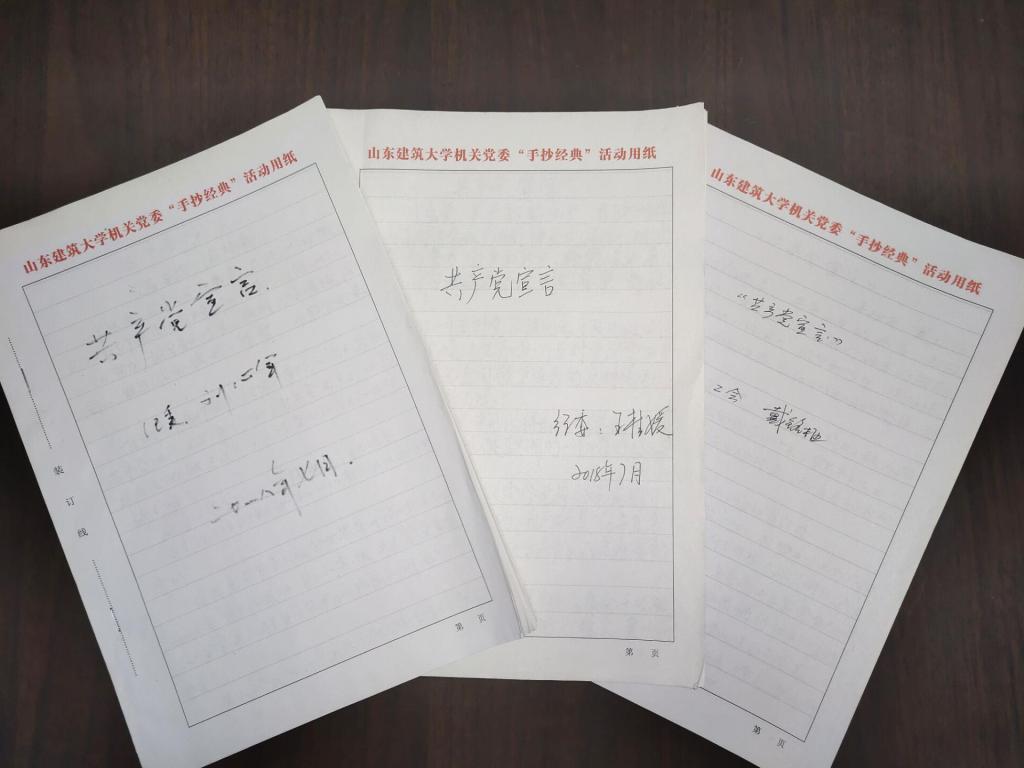 山东建筑大学机关党委“手抄经典”活动用纸
共产党宣言.
二〇一八年七月.
装订线
第 页
山东建筑大学机关党委“手抄经典”活动用纸
共产党宣言
纪委:王桂媛
2018年7月
第 页
山东建筑大学机关党委“手抄经典”活动用纸
“共产党宣言”
工会 戴
第 页